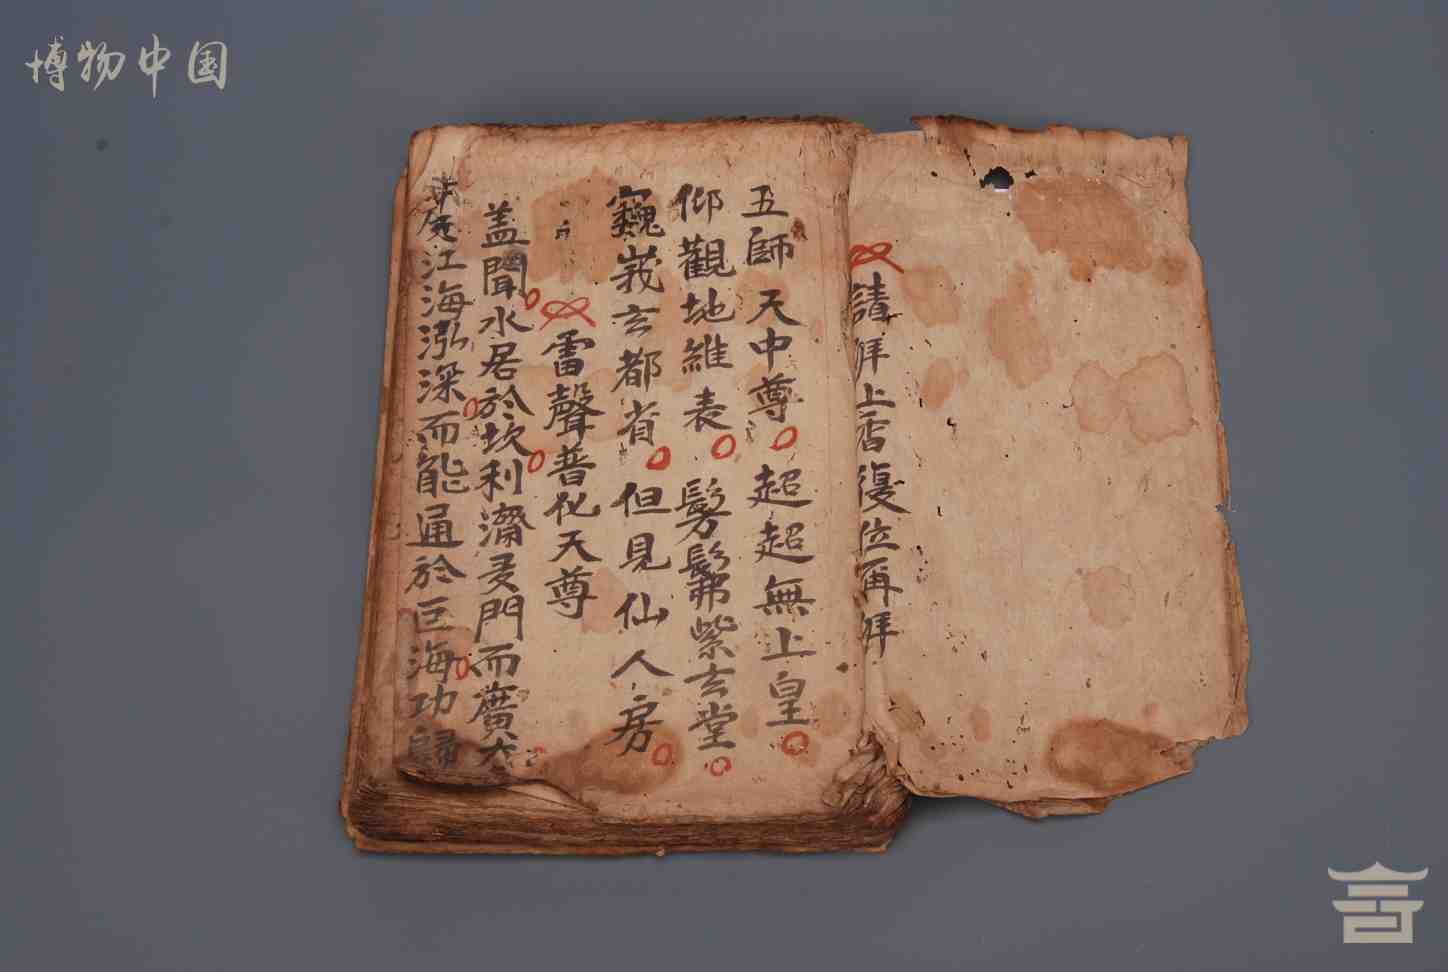 博物中国
請拜上香復位再拜
五師天中尊超超無上皇
仰觀地維表髣髴紫玄堂
巍峩玄都省但見仙人房
雷聲普化天尊
盖聞水居於坎利濟門而廣大
江海泓深而能通於巨海功歸